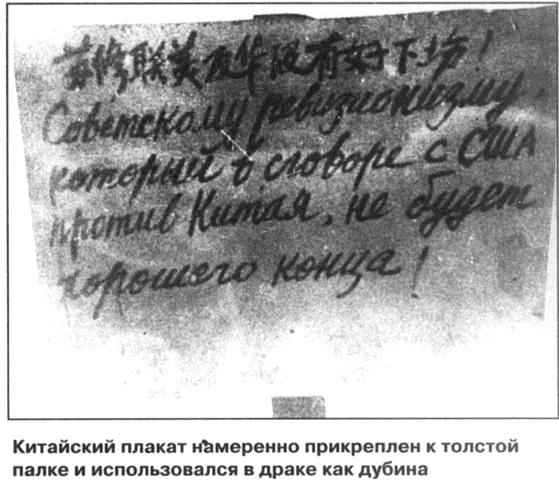 苏修联美反华没有好下场!
Советскому ревизионизму,
который в сговоре с США
против Китая, не будет
хорошего конца!
Китайский плакат намеренно прикреплен к толстой
палке и использовался в драке как дубина